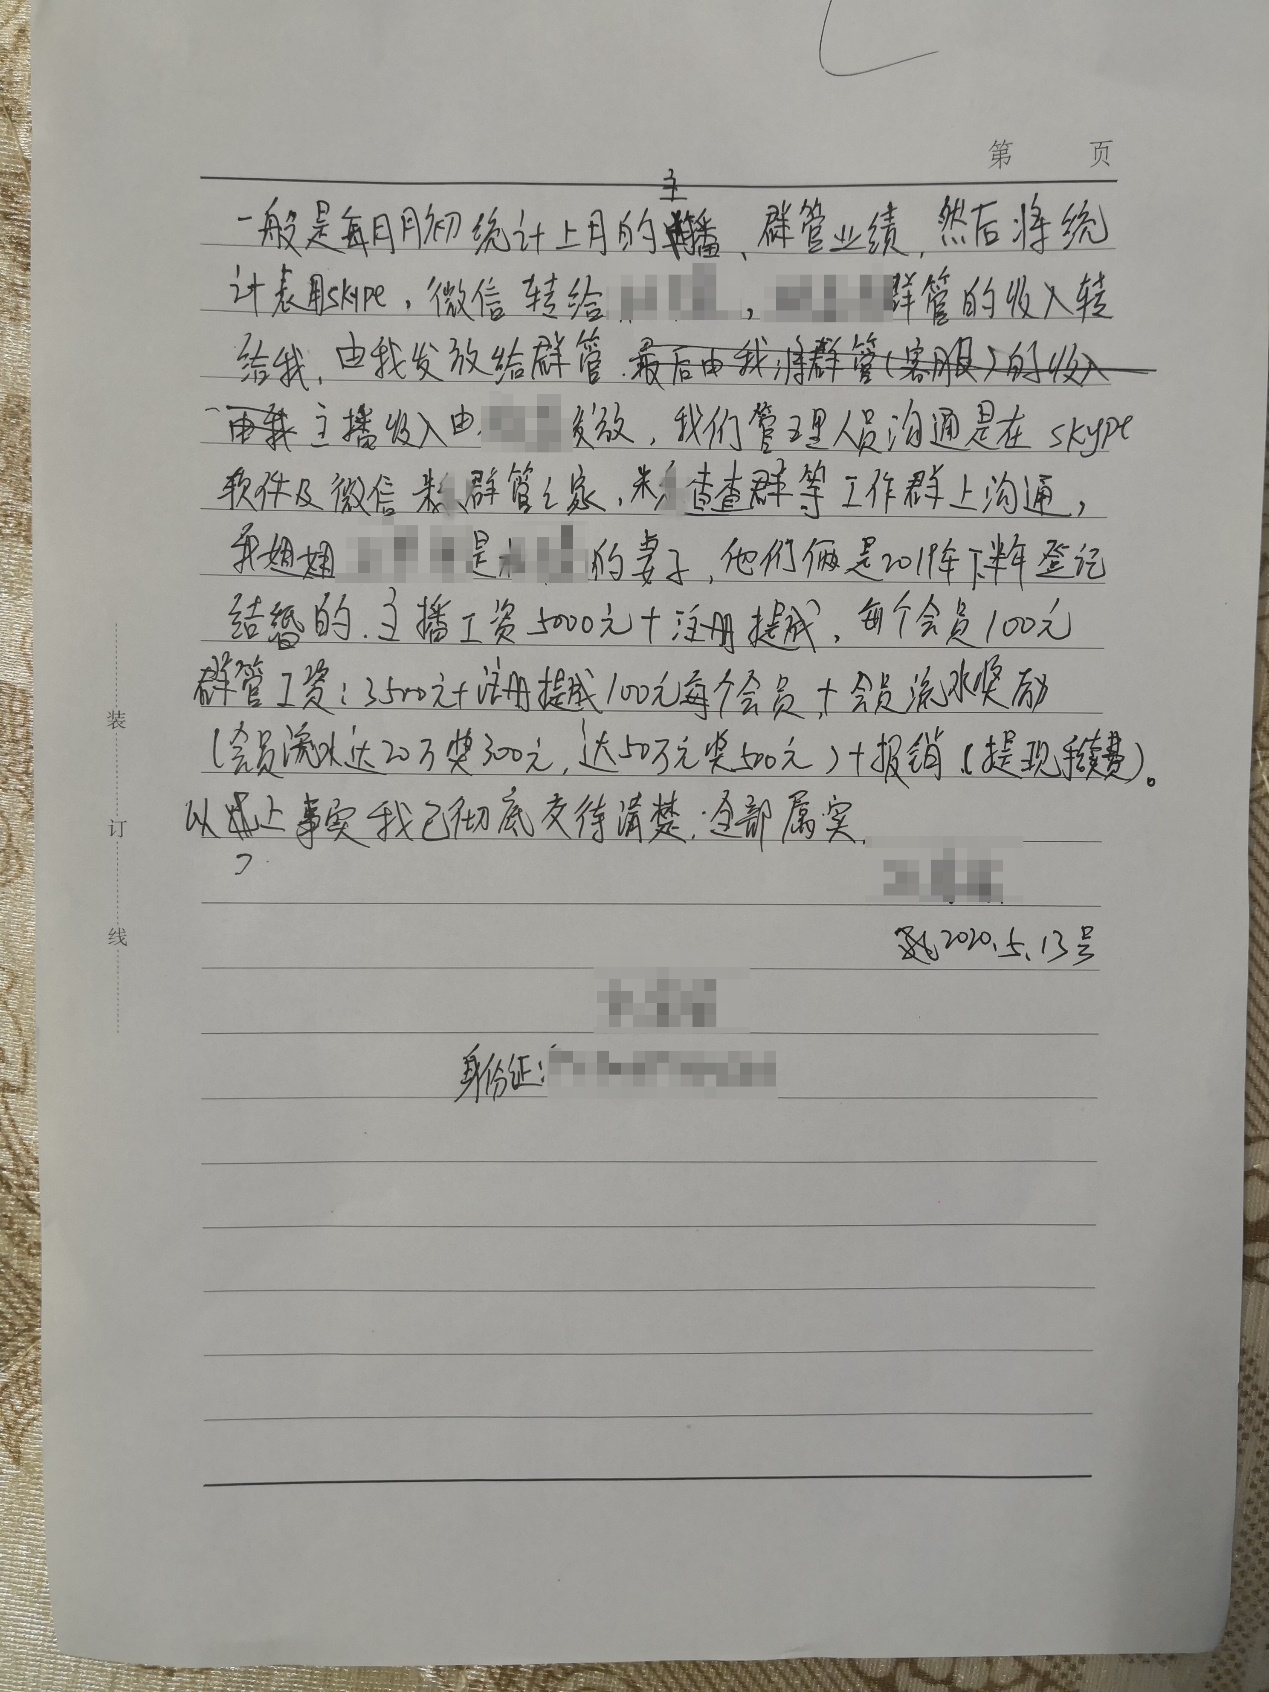 第 页
一般是每月月初统计上月的主播、群管业绩,然后将统
计表用skype,微信转给 , 群管的收入转
给我,由我发放给群管.最后由我将群管(客服)的收入
由我主播收入由 发放,我们管理人员沟通是在skype
软件及微信 群管之家, 查查群等工作群上沟通,
我姐姐 是 的妻子,他们俩是2019年下半年登记
结婚的.主播工资5000元+注册提成,每个会员100元
群管工资:3500元+注册提成100元每个会员,+会员流水奖励
(会员流水达20万奖300元,达50万元奖500元)+报销(提现手续费)。
以上事实我已彻底交待清楚,全部属实.
2020.5.13号
身份证:
装
订
线